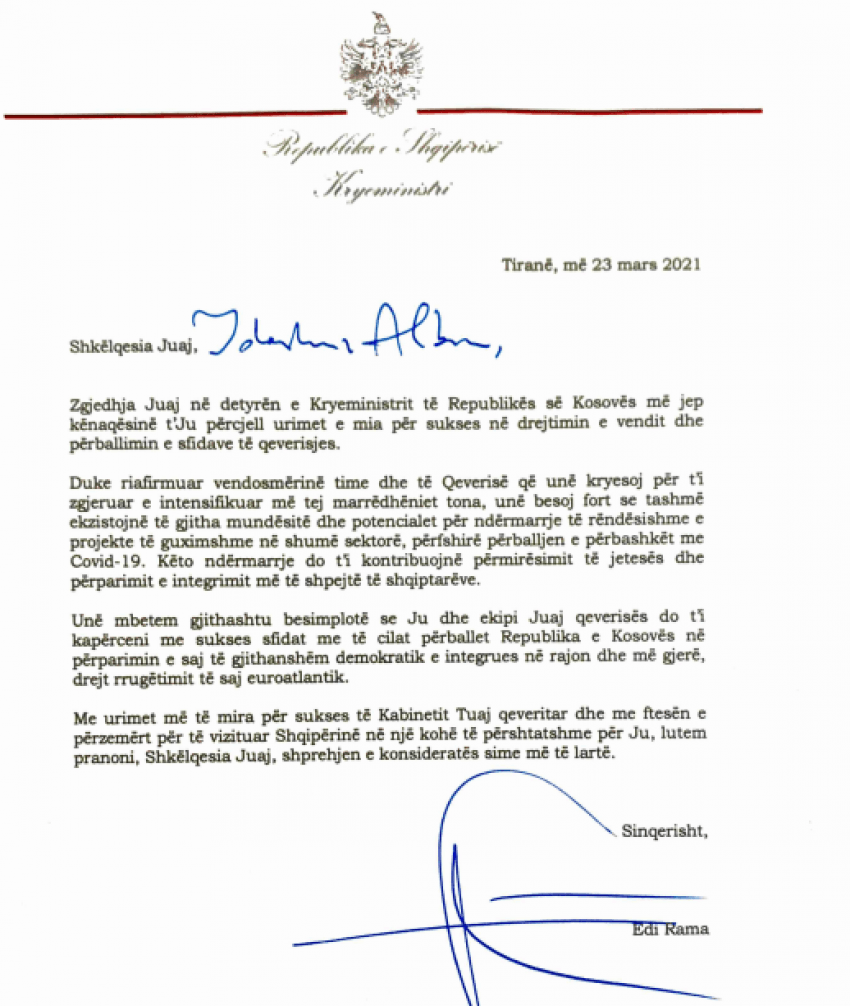 Republika e Shqipërisë
Kryeministri
Tiranë, më 23 mars 2021
Shkëlqesia Juaj, I dashur Albin,
Zgjedhja Juaj në detyrën e Kryeministrit të Republikës së Kosovës më jep
kënaqësinë t'Ju përcjell urimet e mia për sukses në drejtimin e vendit dhe
përballimin e sfidave të qeverisjes.
Duke riafirmuar vendosmërinë time dhe të Qeverisë që unë kryesoj për t'i
zgjeruar e intensifikuar më tej marrëdhëniet tona, unë besoj fort se tashmë
ekzistojnë të gjitha mundësitë dhe potencialet për ndërmarrje të rëndësishme e
projekte të guximshme në shumë sektorë, përfshirë përballjen e përbashkët me
Covid-19. Këto ndërmarrje do t'i kontribuojnë përmirësimit të jetesës dhe
përparimit e integrimit më të shpejtë të shqiptarëve.
Unë mbetem gjithashtu besimplotë se Ju dhe ekipi Juaj qeverisës do t'i
kapërceni me sukses sfidat me të cilat përballet Republika e Kosovës në
përparimin e saj të gjithanshëm demokratik e integrues në rajon dhe më gjerë,
drejt rrugëtimit të saj euroatlantik.
Me urimet më të mira për sukses të Kabinetit Tuaj qeveritar dhe me ftesën e
përzemërt për të vizituar Shqipërinë në një kohë të përshtatshme për Ju, lutem
pranoni, Shkëlqesia Juaj, shprehjen e konsideratës sime më të lartë.
Sinqerisht,
Edi Rama